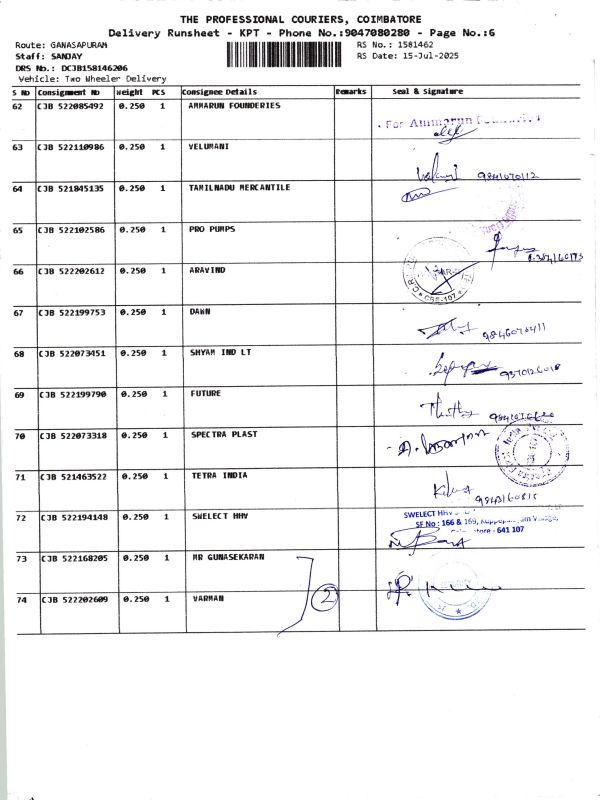 THE PROFESSIONAL COURIERS, COIMBATORE
Delivery Runsheet - KPT - Phone No.:9047080280 - Page No.:6
Route: GANASAPURAM RS No.: 1581462
Staff: SANJAY RS Date: 15-Jul-2025
DRS No.: DCJB158146206
Vehicle: Two Wheeler Delivery
S No Consignment No Weight PCS Consignee Details Remarks Seal & Signature
62 CJB 522085492 0.250 1 AMMARUN FOUNDERIES
For Ammarun Founderies
63 CJB 522110986 0.250 1 VELUMANI
64 CJB 521845135 0.250 1 TAMILNADU MERCANTILE
65 CJB 522102586 0.250 1 PRO PUMPS
66 CJB 522202612 0.250 1 ARAVIND
67 CJB 522199753 0.250 1 DAWN
68 CJB 522073451 0.250 1 SHYAM IND LT
69 CJB 522199790 0.250 1 FUTURE
70 CJB 522073318 0.250 1 SPECTRA PLAST
71 CJB 521463522 0.250 1 TETRA INDIA
72 CJB 522194148 0.250 1 SWELECT HHV
SWELECT HHV
SF No : 166 & 169,
641 107
73 CJB 522168205 0.250 1 MR GUNASEKARAN
2
74 CJB 522202609 0.250 1 VARMAN